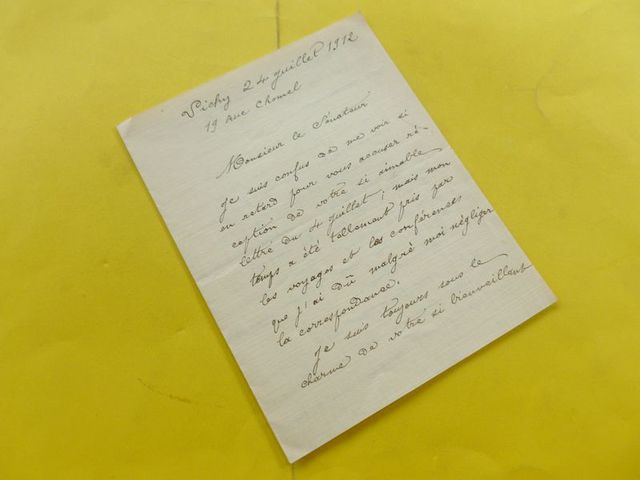 Vichy 24 Juillet 1912
19 rue Chomel
Monsieur le Sénateur
Je suis confus de me voir si
en retard pour vous accuser ré-
ception de votre si aimable
lettre du 4 juillet; mais mon
temps a été tellement pris par
les voyages et les conférences
que j'ai dû malgré moi négliger
la correspondance.
Je suis toujours sous le
charme de votre si bienveillant